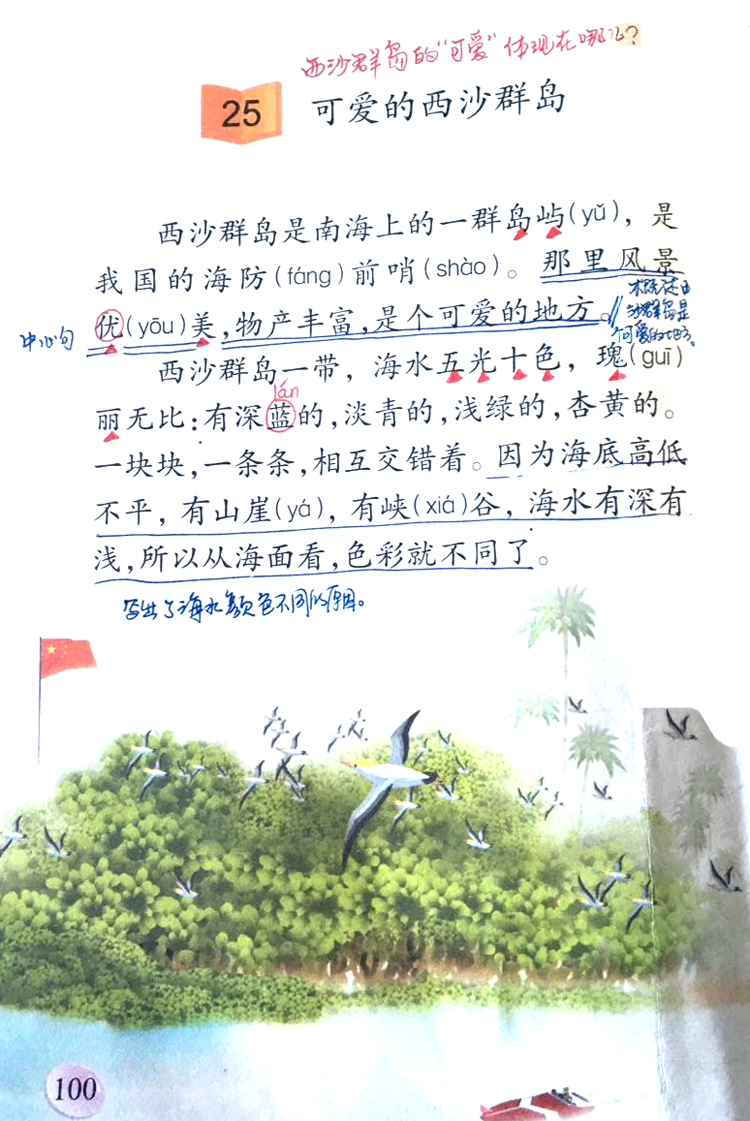 西沙群岛的"可爱"体现在哪儿?
25 可爱的西沙群岛
西沙群岛是南海上的一群岛屿(yǔ),是
我国的海防(fáng)前哨(shào)。那里风景
优(yōu)美,物产丰富,是个可爱的地方。
中心句
沙群岛是
可爱的地方。
西沙群岛一带,海水五光十色,瑰(guī)
lán
丽无比:有深蓝的,淡青的,浅绿的,杏黄的。
一块块,一条条,相互交错着。因为海底高低
不平,有山崖(yá),有峡(xiá)谷,海水有深有
浅,所以从海面看,色彩就不同了。
写出了海水颜色不同的原因。
100